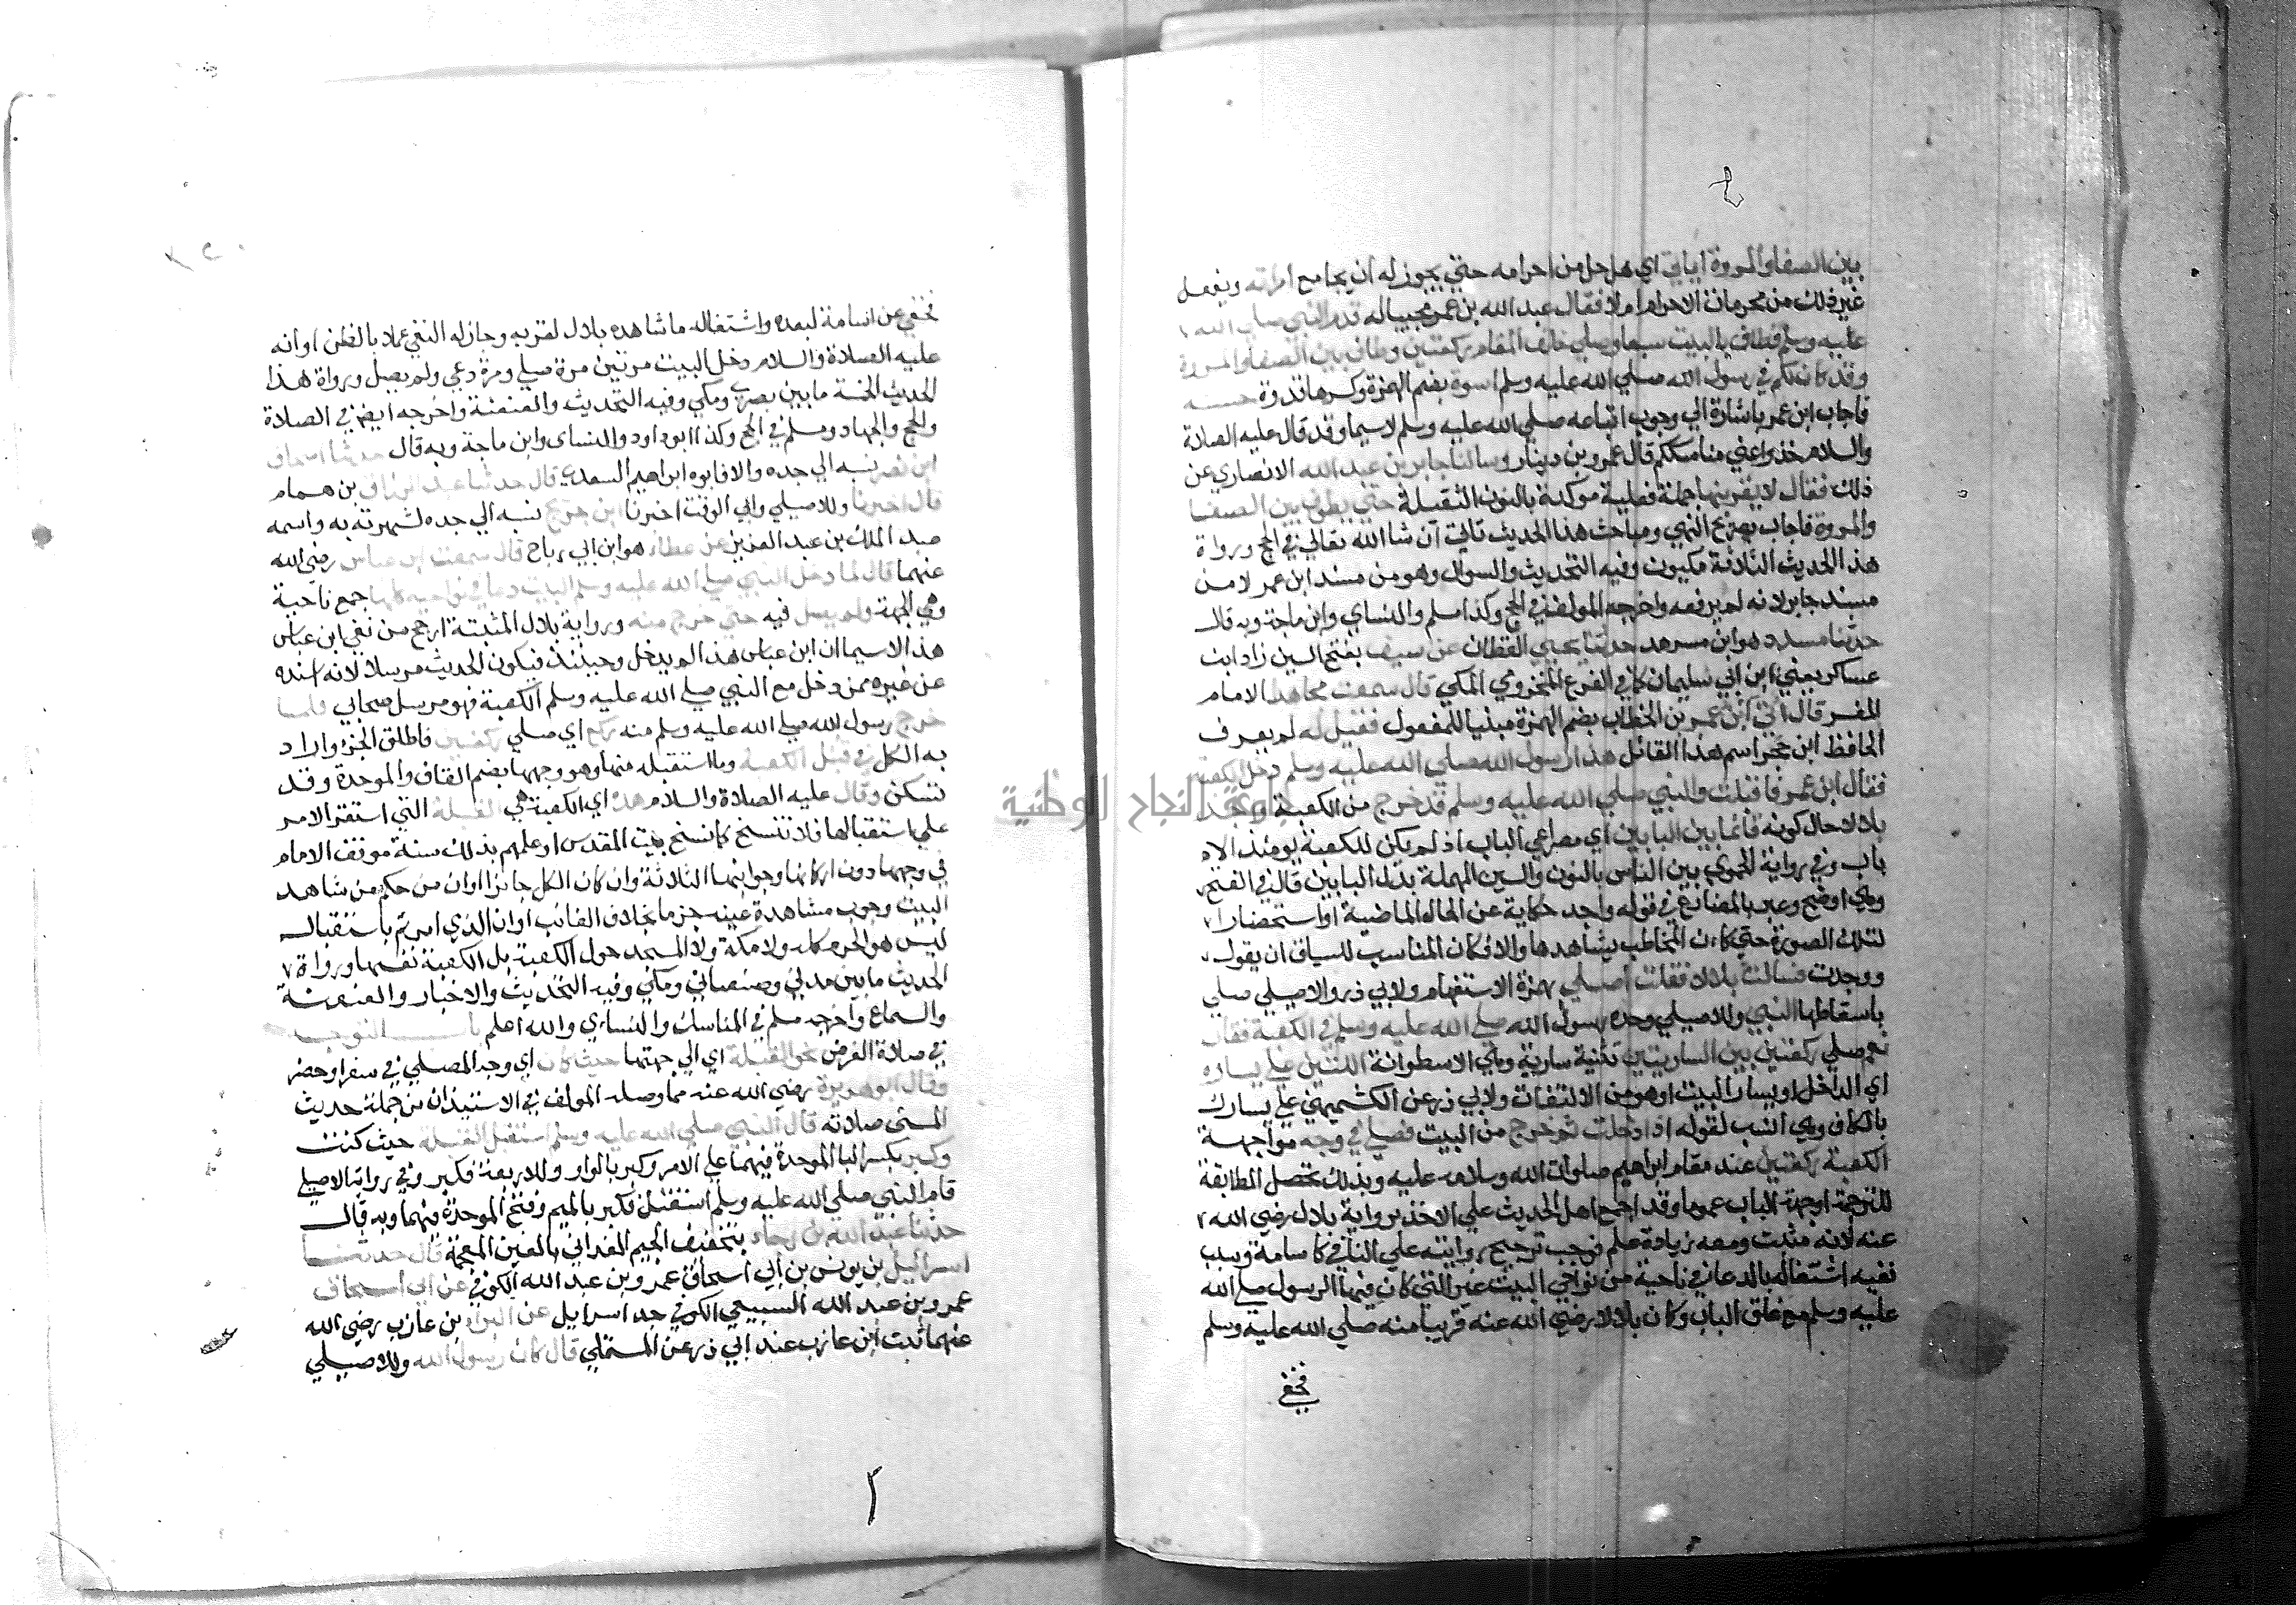 بين الصفا والمروة اياتي اي هل حل من احرامه حتي يجوز له ان يجامع امراته ويفعل
غير ذلك من محرمات الاحرام ام لا فقال عبد الله بن عمر مجيبا له قدم النبي صلي الله
عليه وسلم فطاف بالبيت سبعا وصلي خلف المقام ركعتين وطاف بين الصفا والمروة
وقد كان لكم في رسول الله صلي الله عليه وسلم اسوة بضم الهمزة وكسرها قدوة حسنة
فاجاب ابن عمر باشارة الي وجوب اتباعه صلي الله عليه وسلم لاسيما وقد قال عليه الصلاة
والسلام خذوا عني مناسككم قال عمرو بن دينار وسالنا جابر بن عبد الله الانصاري عن
ذلك فقال لا يقربنها جملة فعلية موكدة بالنون الثقيلة حتي يطوف بين الصفا
والمروة فاجاب بصريح النهي ومباحث هذا الحديث تاتي ان شا الله تعالي في الحج ورواة
هذا الحديث الثلاثة مكيون وفيه التحديث والسوال وهو من مسند ابن عمر لا من
مسند جابر لانه لم يرفعه واخرجه المولف في الحج وكذا مسلم والنساي وابن ماجة وبه قال
حدثنا مسدد هو ابن مسرهد حدثنا يحيي القطان عن سيف بفتح السين زاد ابن
عساكر يعني ابن ابي سليمان كما في الفرع المخزومي المكي قال سمعت مجاهدا الامام
المفسر قال اتي ابن عمر بن الخطاب بضم الهمزة مبنيا للمفعول فقيل له لم يعرف
الحافظ ابن حجر اسم هذا القائل هذا رسول الله صلي الله عليه وسلم دخل الكعبة
فقال ابن عمر فاقبلت والنبي صلي الله عليه وسلم قد خرج من الكعبة واجد
بلالا حال كونه قائما بين البابين اي مصراعي الباب اذ لم يكن للكعبة يومئذ الا
باب وفي رواية الحموي بين الناس بالنون والسين المهملة بدل البابين قال في الفتح
وهي اوضح وعبر بالمضارع في قوله واجد حكاية عن الحال الماضية او استحضارا
لتلك الصورة حتي كان المخاطب يشاهدها والا فكان المناسب للسياق ان يقول
ووجدت فسالت بلالا فقلت اصلي بهمزة الاستفهام ولابي ذر والاصيلي صلي
باسقاطها النبي وللاصيلي وحده رسول الله صلي الله عليه وسلم في الكعبة فقال
نعم صلي ركعتين بين الساريتين تثنية سارية وهي الاسطوانة اللتين علي يساره
اي الداخل او يسار البيت او هو من الالتفات ولابي ذر عن الكشميهني علي يسارك
بالكاف وهي انسب لقوله اذا دخلت ثم خرج من البيت فصلي في وجه مواجهة
الكعبة ركعتين عند مقام ابراهيم صلوات الله وسلامه عليه وبذلك تحصل المطابقة
للترجمة او جهة الباب عموما وقد اجمع اهل الحديث علي الاخذ برواية بلال رضي الله
عنه لانه مثبت ومعه زيادة علم فوجب ترجيح روايته علي النافي كاسامة وسبب
نفيه اشتغاله بالدعا في ناحية من نواحي البيت غير التي كان فيها الرسول صلي الله
عليه وسلم مع غلق الباب وكان بلالا رضي الله عنه قريبا منه صلي الله عليه وسلم
فخفي
فخفي عن اسامة لبعده واشتغاله ما شاهده بلال لقربه وجاز له النفي عملا بالظن او انه
عليه الصلاة والسلام دخل البيت مرتين مرة صلي ومرة دعي ولم يصل ورواة هذا
الحديث الخمسة ما بين بصري ومكي وفيه التحديث والعنعنة واخرجه ايضا في الصلاة
والحج والجهاد ومسلم في الحج وكذا ابو داود والنساي وابن ماجة وبه قال حدثنا اسحاق
ابن نصر نسبه الي جده والا فابوه ابراهيم السعدي قال حدثنا عبد الرزاق بن همام
قال اخبرنا وللاصيلي وابي الوقت اخبرنا ابن جريج نسبه الي جده لشهرته به واسمه
عبد الملك بن عبد العزيز عن عطاء هو ابن ابي رباح قال سمعت ابن عباس رضي الله
عنهما قال لما دخل النبي صلي الله عليه وسلم البيت دعا في نواحيه كلها جمع ناحية
وهي الجهة ولم يصل فيه حتي خرج منه ورواية بلال المثبتة ارجح من نفي ابن عباس
هذا لاسيما ان ابن عباس هذا لم يدخل وحينئذ فيكون الحديث مرسلا لانه اسنده
عن غيره ممن دخل مع النبي صلي الله عليه وسلم الكعبة فهو مرسل صحابي فلما
خرج رسول الله صلي الله عليه وسلم منه ركع اي صلي ركعتين فاطلق الجزو واراد
به الكل في قبل الكعبة وما استقبله منها وهو وجهها بضم القاف والموحدة وقد
تسكن وقال عليه الصلاة والسلام هذه اي الكعبة هي القبلة التي استقر الامر
علي استقبالها فلا تنسخ كما نسخ بيت المقدس او علمهم بذلك سنة موقف الامام
في وجهها دون اركانها وجوانبها الثلاثة وان كان الكل جائزا او ان من حكم من شاهد
البيت وجوب مشاهدة عينه جزما بخلاف الغائب او ان الذي امرتم باستقباله
ليس هو الحرم كله ولا مكة ولا المسجد حول الكعبة بل الكعبة نفسها ورواة
الحديث ما بين مدني وصنعاني ومكي وفيه التحديث والاخبار والعنعنة
والسماع واخرجه مسلم في المناسك والنساي والله اعلم باب التوجه
في صلاة الفرض نحو القبلة اي الي جهتها حيث كان اي وجد المصلي في سفر او حضر
وقال ابو هريرة رضي الله عنه مما وصله المولف في الاستيذان من جملة حديث
المسئ صلاته قال النبي صلي الله عليه وسلم استقبل القبلة حيث كنت
وكبر بكسر البا الموحدة فيهما علي الامر وكبر بالواو وللاربعة فكبر وفي رواية الاصيلي
قام النبي صلي الله عليه وسلم استقبل فكبر بالميم وفتح الموحدة فيهما وبه قال
حدثنا عبد الله بن رجاء بتخفيف الجيم الغداني بالغين المعجمة قال حدثنا
اسرائيل بن يونس بن ابي اسحاق عمرو بن عبد الله الكوفي عن ابي اسحاق
عمرو بن عبد الله السبيعي الكوفي جد اسرايل عن البراء بن عازب رضي الله
عنهما ثبت ابن عازب عند ابي ذر عن المستملي قال كان رسول الله وللاصيلي
جامعة النجاح الوطنية